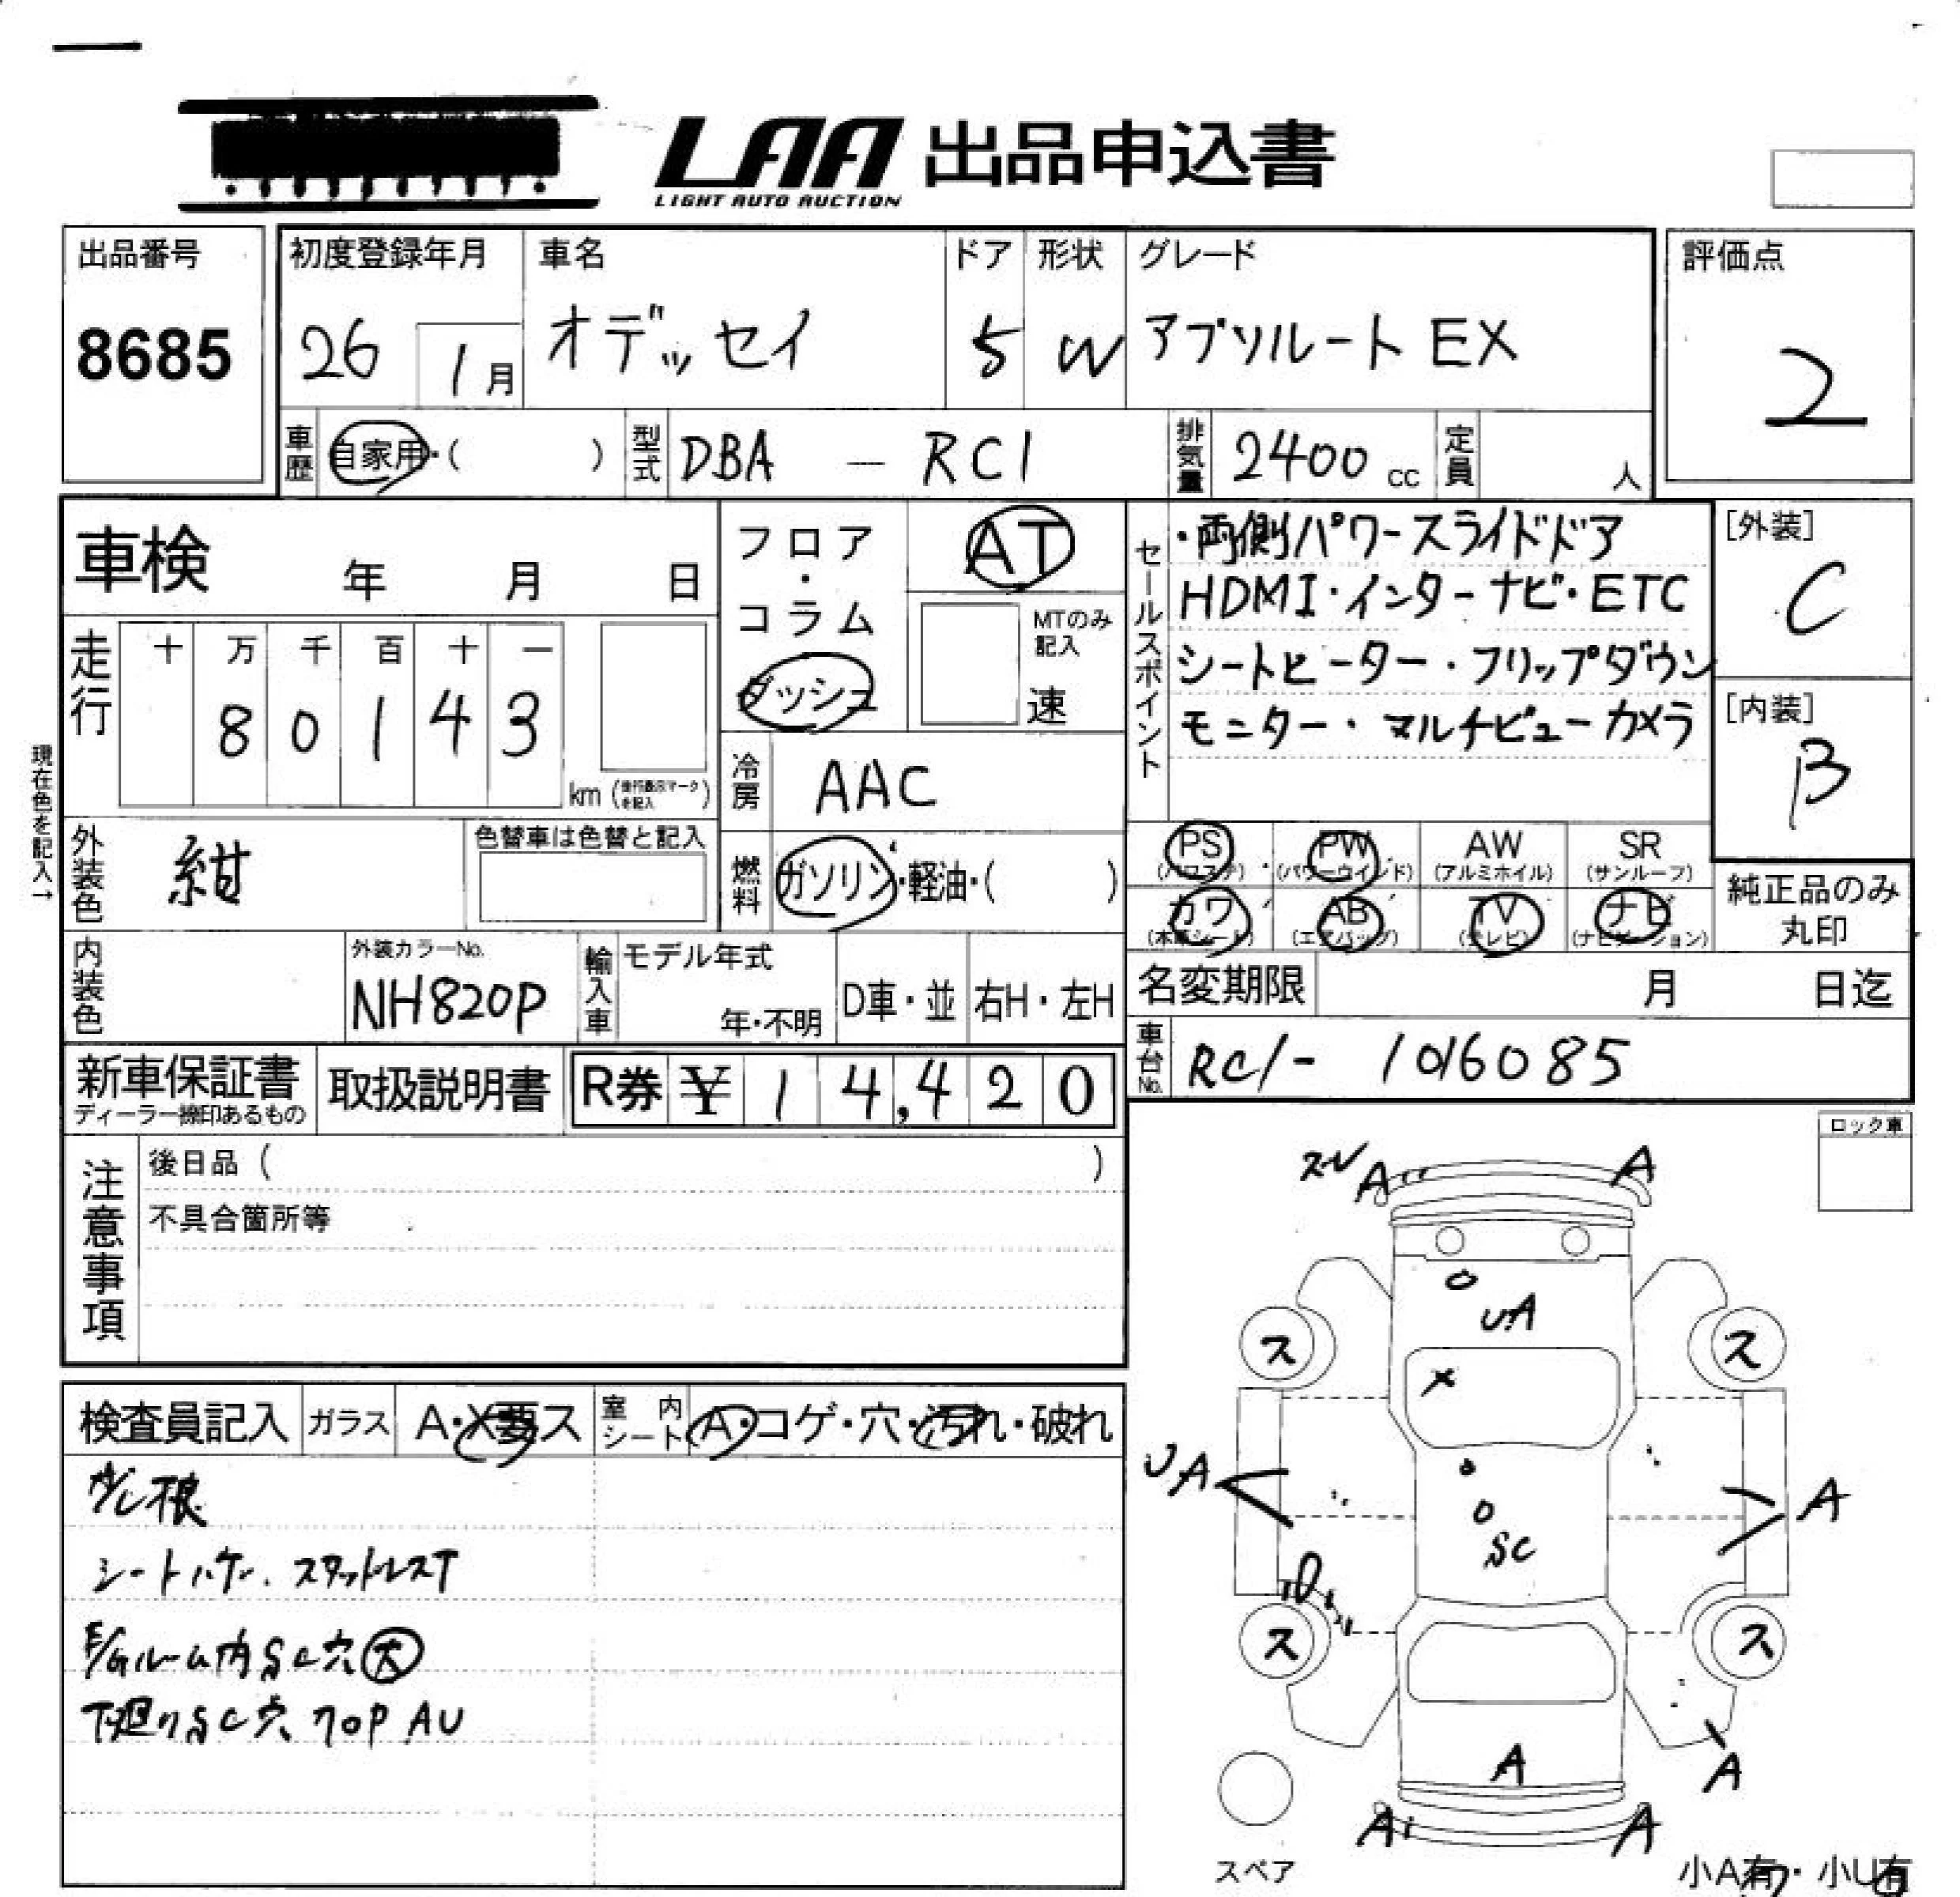 LAA 出品申込書
LIGHT AUTO AUCTION
出品番号
8685
初度登録年月
26 1月
車名
オデッセイ
ドア
5
形状
W
グレード
アブソルート EX
評価点
2
車歴
自家用・( )
型式
DBA — RC1
排気量
2400 cc
定員
人
車検 年 月 日
走行
十 万 千 百 十 一
8 0 1 4 3
km
フロア・コラム
ダッシュ
AT
MTのみ記入
速
冷房
AAC
燃料
ガソリン・軽油・( )
セールスポイント
・両側パワースライドドア
HDMI・インターナビ・ETC
シートヒーター・フリップダウン
モニター・マルチビューカメラ
[外装]
C
[内装]
B
現在色を記入→
外装色
紺
色替車は色替と記入
PS
(パワステ)
PW
(パワーウインド)
AW
(アルミホイル)
SR
(サンルーフ)
カワ
(本革シート)
AB
(エアバッグ)
TV
(テレビ)
ナビ
(ナビゲーション)
純正品のみ
丸印
内装色
外装カラーNo.
NH820P
輸入車
モデル年式
年・不明
D車・並
右H・左H
名変期限 月 日迄
車台No.
RC1- 1016085
新車保証書
ディーラー捺印あるもの
取扱説明書
R券 ¥ 14,420
注意事項
後日品 ( )
不具合箇所等
ロック車
検査員記入
ガラス
A・X要・ス
室内シート
A・コゲ・穴・汚れ・破れ
シートハゲ、スタッドレスT
E/Gルーム内SC穴大
下廻りSC穴 フロP AU
A
A
UA
ス
ス
X
UA
A
SC
ス
ス
A
A
A
A
スペア
小A有・小U有